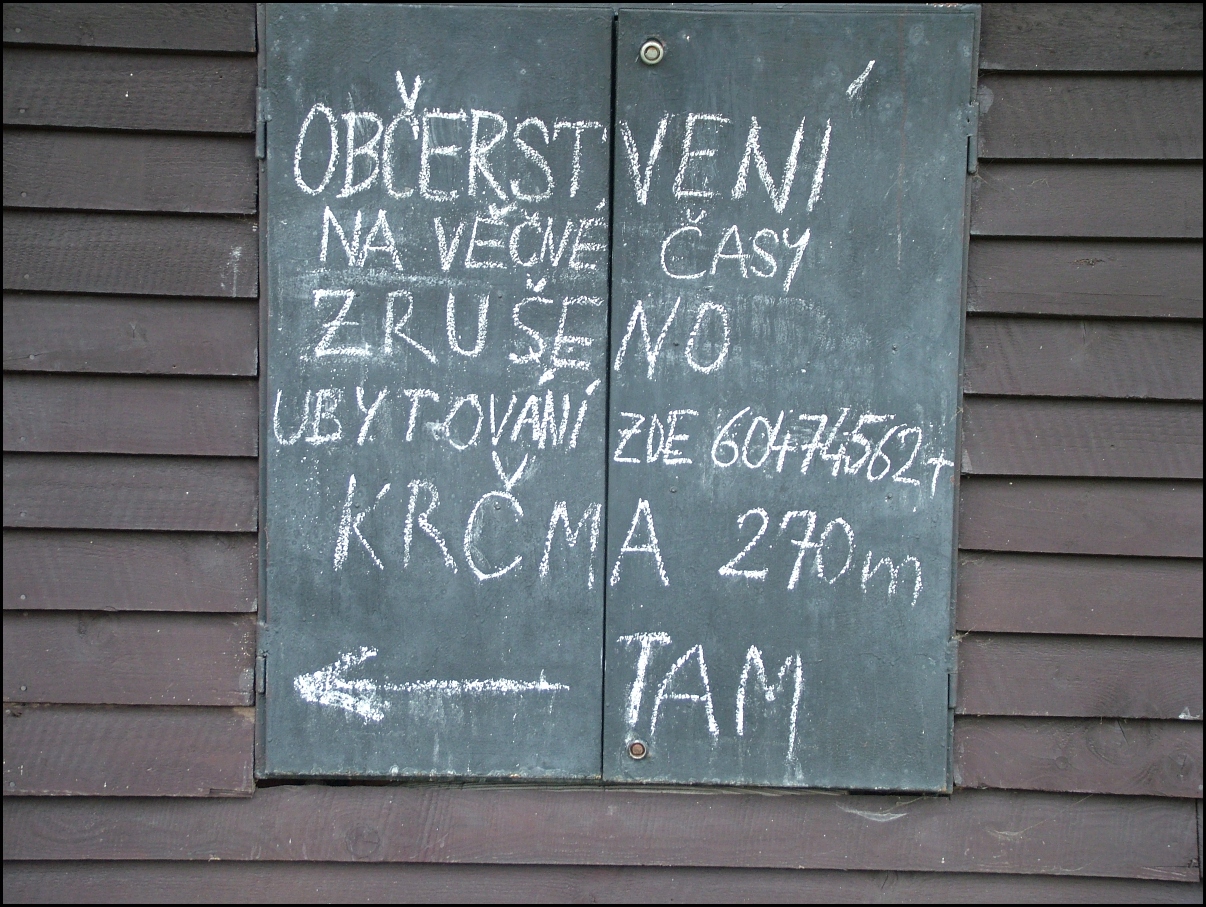 OBČERSTVENÍ
NA VĚČNÉ ČASY
ZRUŠENO
UBYTOVÁNÍ ZDE 60474562+
KRČMA 270m
← TAM